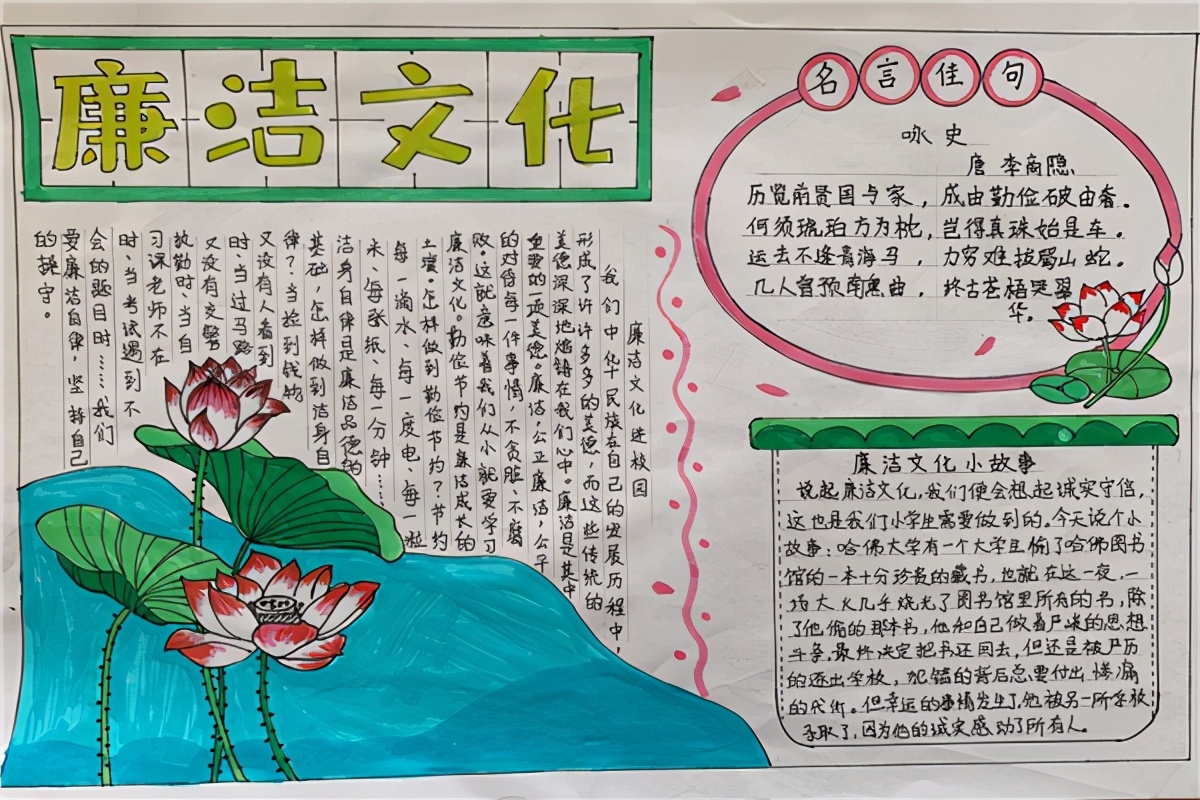 廉洁文化
廉洁文化进校园
我们中华民族在自己的发展历程中，
形成了许许多多的美德，而这些传统的
美德深深地烙铸在我们心中。廉洁是其中
重要的一项美德。廉洁，公正廉洁，公平
的对待每一件事情，不贪赃、不腐
败。这就意味着我们从小就要学习
廉洁文化。勤俭节约是廉洁成长的
土壤。怎样做到勤俭节约？节约
每一滴水、每一度电、每一粒
米、每张纸、每一分钟……
洁身自律是廉洁品德的
基础，怎样做到洁身自
律？当捡到钱物
又没有人看到
时、当过马路
又没有交警
执勤时、当自
习课老师不在
时、当考试遇到不
会的题目时……我们
要廉洁自律，坚持自己
的操守。
名言佳句
咏史
唐 李商隐
历览前贤国与家，成由勤俭破由奢。
何须琥珀方为枕，岂得真珠始是车。
运去不逢青海马，力穷难拔蜀山蛇。
几人曾预南薰曲，终古苍梧哭翠
华。
廉洁文化小故事
说起廉洁文化，我们便会想起诚实守信，
这也是我们小学生需要做到的。今天说个小
故事：哈佛大学有一个大学生偷了哈佛图书
馆的一本十分珍贵的藏书，也就在这一夜，一
场大火几乎烧光了图书馆里所有的书，除
了他偷的那本书，他和自己做着严峻的思想
斗争，最终决定把书还回去，但还是被严厉
的逐出学校，犯错的背后总要付出惨痛
的代价。但幸运的事情发生了，他被另一所学校
录取了，因为他的诚实感动了所有人。